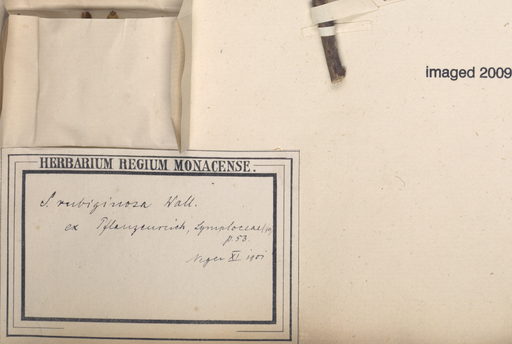 imaged 2009
HERBARIUM REGIUM MONACENSE.
S. rubiginosa Wall.
ex Pflanzenreich, Symplocaceae
p. 53.
XI 1901